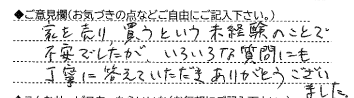 ◆ご意見欄(お気づきの点などご自由にご記入下さい。)
家を売り、買うという未経験のことで
不安でしたが、いろいろな質問にも
丁寧に答えていただきありがとうござい
ました。